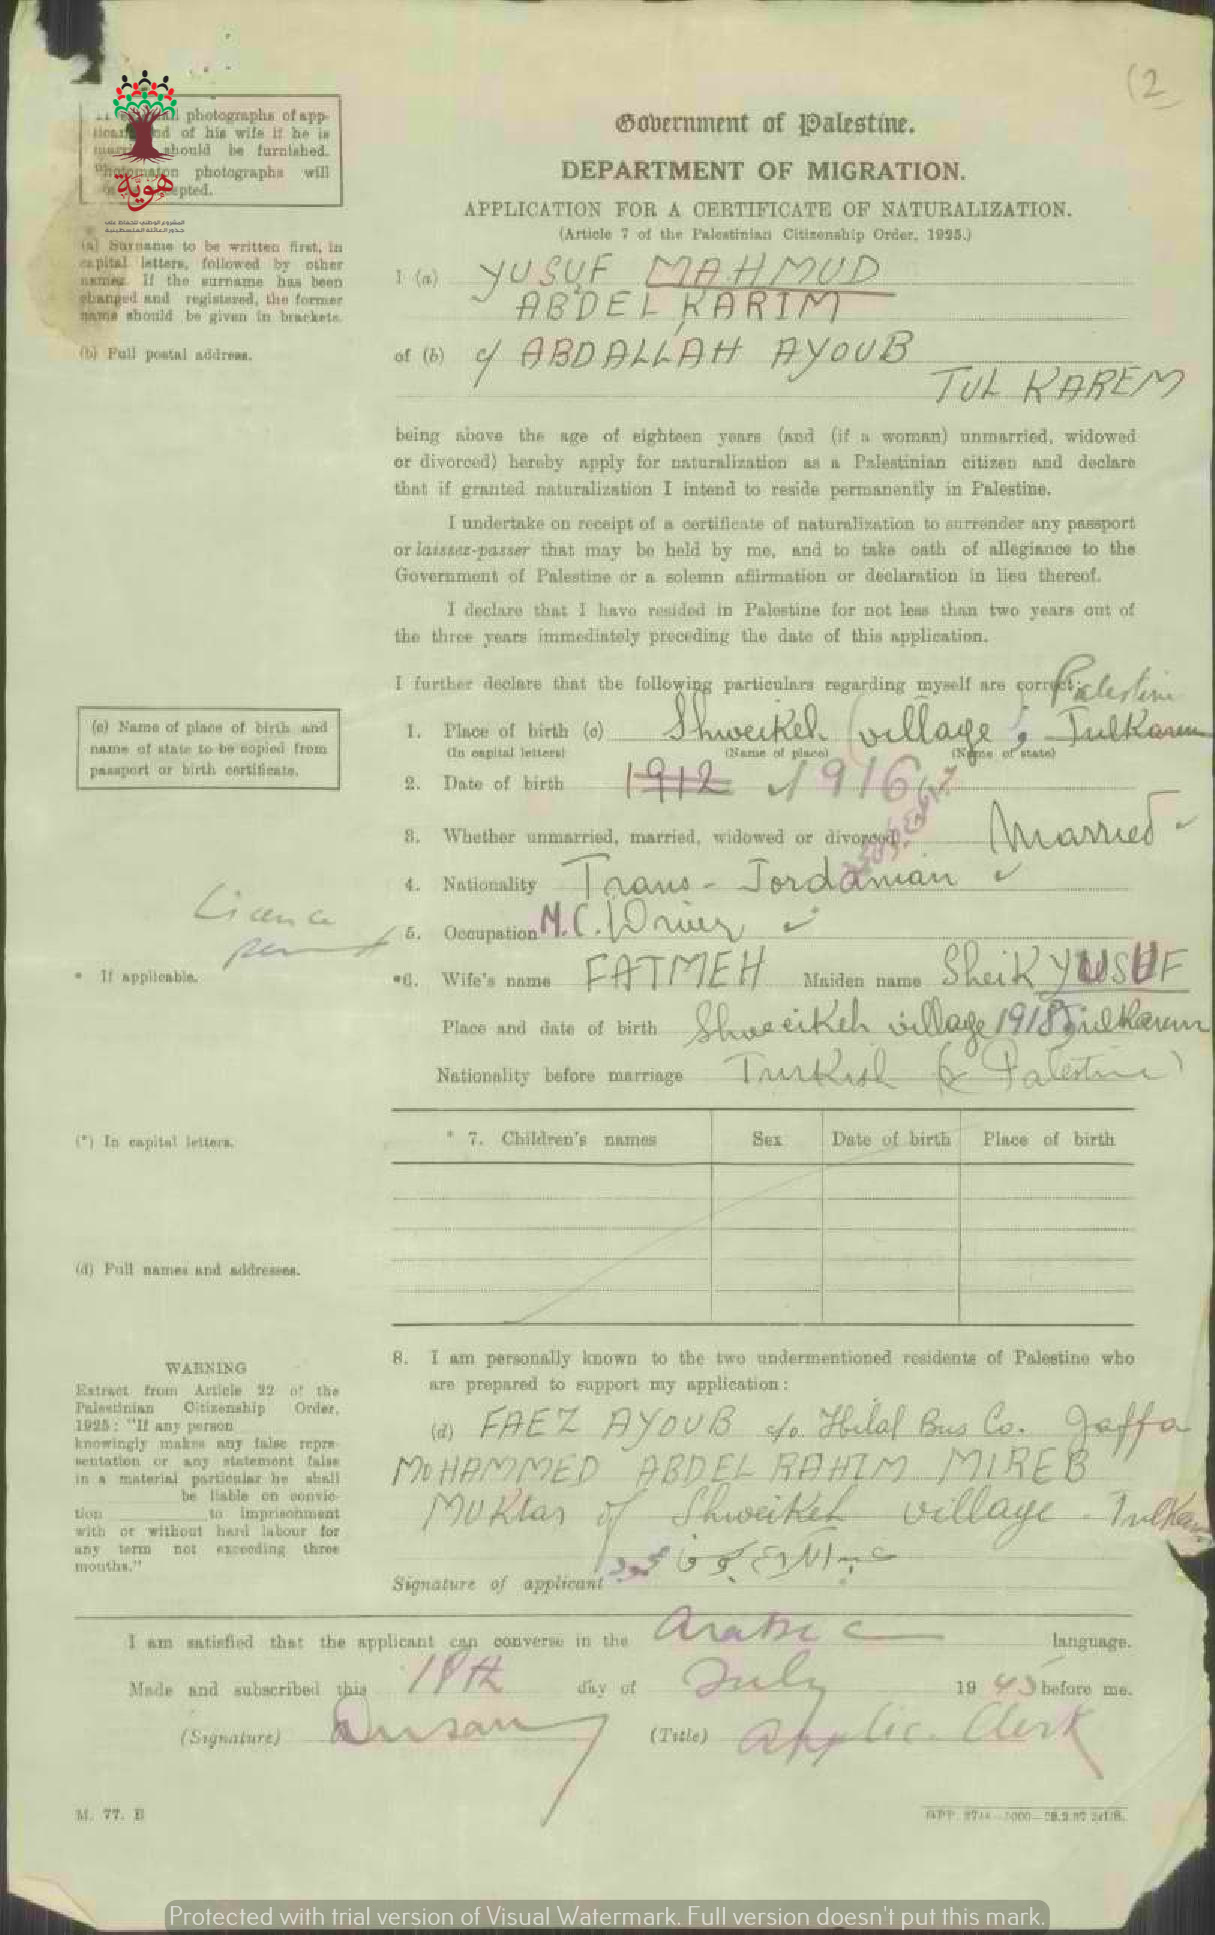 (2
photographs of app-
of his wife if he is
should be furnished.
photographs will
هوية
المشروع الوطني للحفاظ على
جذور العائلة الفلسطينية
Government of Palestine.
DEPARTMENT OF MIGRATION.
APPLICATION FOR A CERTIFICATE OF NATURALIZATION.
(Article 7 of the Palestinian Citizenship Order, 1925.)
(a) Surname to be written first, in
capital letters, followed by other
names. If the surname has been
changed and registered, the former
name should be given in brackets.
I (a) YUSUF MAHMUD
ABDEL KARIM
(b) Full postal address.
of (b) c/ ABDALLAH AYOUB
TUL KAREM
being above the age of eighteen years (and (if a woman) unmarried, widowed
or divorced) hereby apply for naturalization as a Palestinian citizen and declare
that if granted naturalization I intend to reside permanently in Palestine.
I undertake on receipt of a certificate of naturalization to surrender any passport
or laissez-passer that may be held by me, and to take oath of allegiance to the
Government of Palestine or a solemn affirmation or declaration in lieu thereof.
I declare that I have resided in Palestine for not less than two years out of
the three years immediately preceding the date of this application.
I further declare that the following particulars regarding myself are correct:
Palestine
(c) Name of place of birth and
name of state to be copied from
passport or birth certificate.
1. Place of birth (c) Shweikeh village, TulKarem
(In capital letters) (Name of place) (Name of state)
2. Date of birth 1912 1916
3. Whether unmarried, married, widowed or divorced Married
4. Nationality Trans-Jordanian
Licence
5. Occupation M.C. Driver
* If applicable.
*6. Wife's name FATMEH Maiden name Sheik YUSUF
Place and date of birth Shweikeh village 1918 Tulkarem
Nationality before marriage Turkish (Palestine)
(*) In capital letters.
* 7. Children's names Sex Date of birth Place of birth
(d) Full names and addresses.
8. I am personally known to the two undermentioned residents of Palestine who
are prepared to support my application:
(d) FAEZ AYOUB c/o Hilal Bus Co. Jaffa
MOHAMMED ABDEL RAHIM MIREB
Muktar of Shweikeh village - Tulkarem
WARNING
Extract from Article 22 of the
Palestinian Citizenship Order,
1925: "If any person
knowingly makes any false repre-
sentation or any statement false
in a material particular he shall
be liable on convic-
tion to imprisonment
with or without hard labour for
any term not exceeding three
months."
Signature of applicant
I am satisfied that the applicant can converse in the Arabic language.
Made and subscribed this 19th day of July 1945 before me.
(Signature) (Title) Applic. Clerk
M. 77. B
Protected with trial version of Visual Watermark. Full version doesn't put this mark.